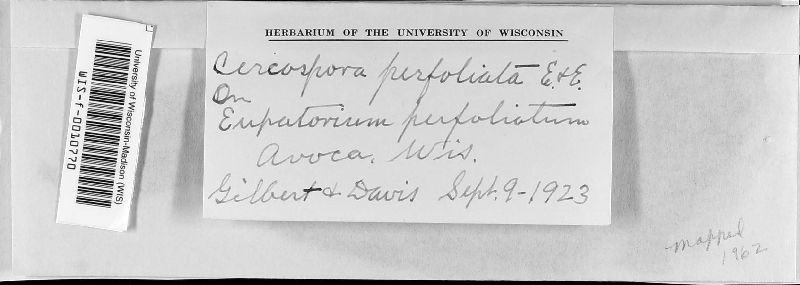 HERBARIUM OF THE UNIVERSITY OF WISCONSIN
Cercospora perfoliata E. & E.
On
Eupatorium perfoliatum
Avoca, Wis.
Gilbert & Davis Sept. 9-1923
University of Wisconsin-Madison (WIS)
WIS-f-0010770
mapped
1962